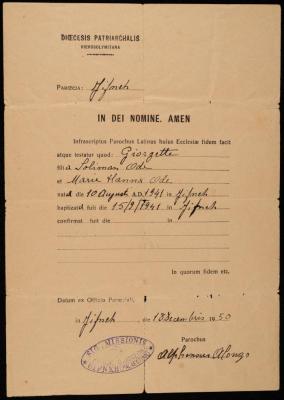 DIŒCESIS PATRIARCHALIS
HIEROSOLYMITANA
PARŒCIA: Jifneh
IN DEI NOMINE. AMEN
Infrascriptus Parochus Latinus huius Ecclesiæ fidem facit
atque testatur quod: Giorgette
filia Soliman Ode
et Marie Hanna Ode
nata die 10 August A.D. 1941 in Jifneh
baptizata fuit die 15/9/1941 in Jifneh
confirmat fuit die in
In quorum fidem etc.
Datum ex Officio Parœciali,
in Jifneh die 13 Decembris 1950
Parochus
Alphonsus Alonso
SIG. MISSIONIS